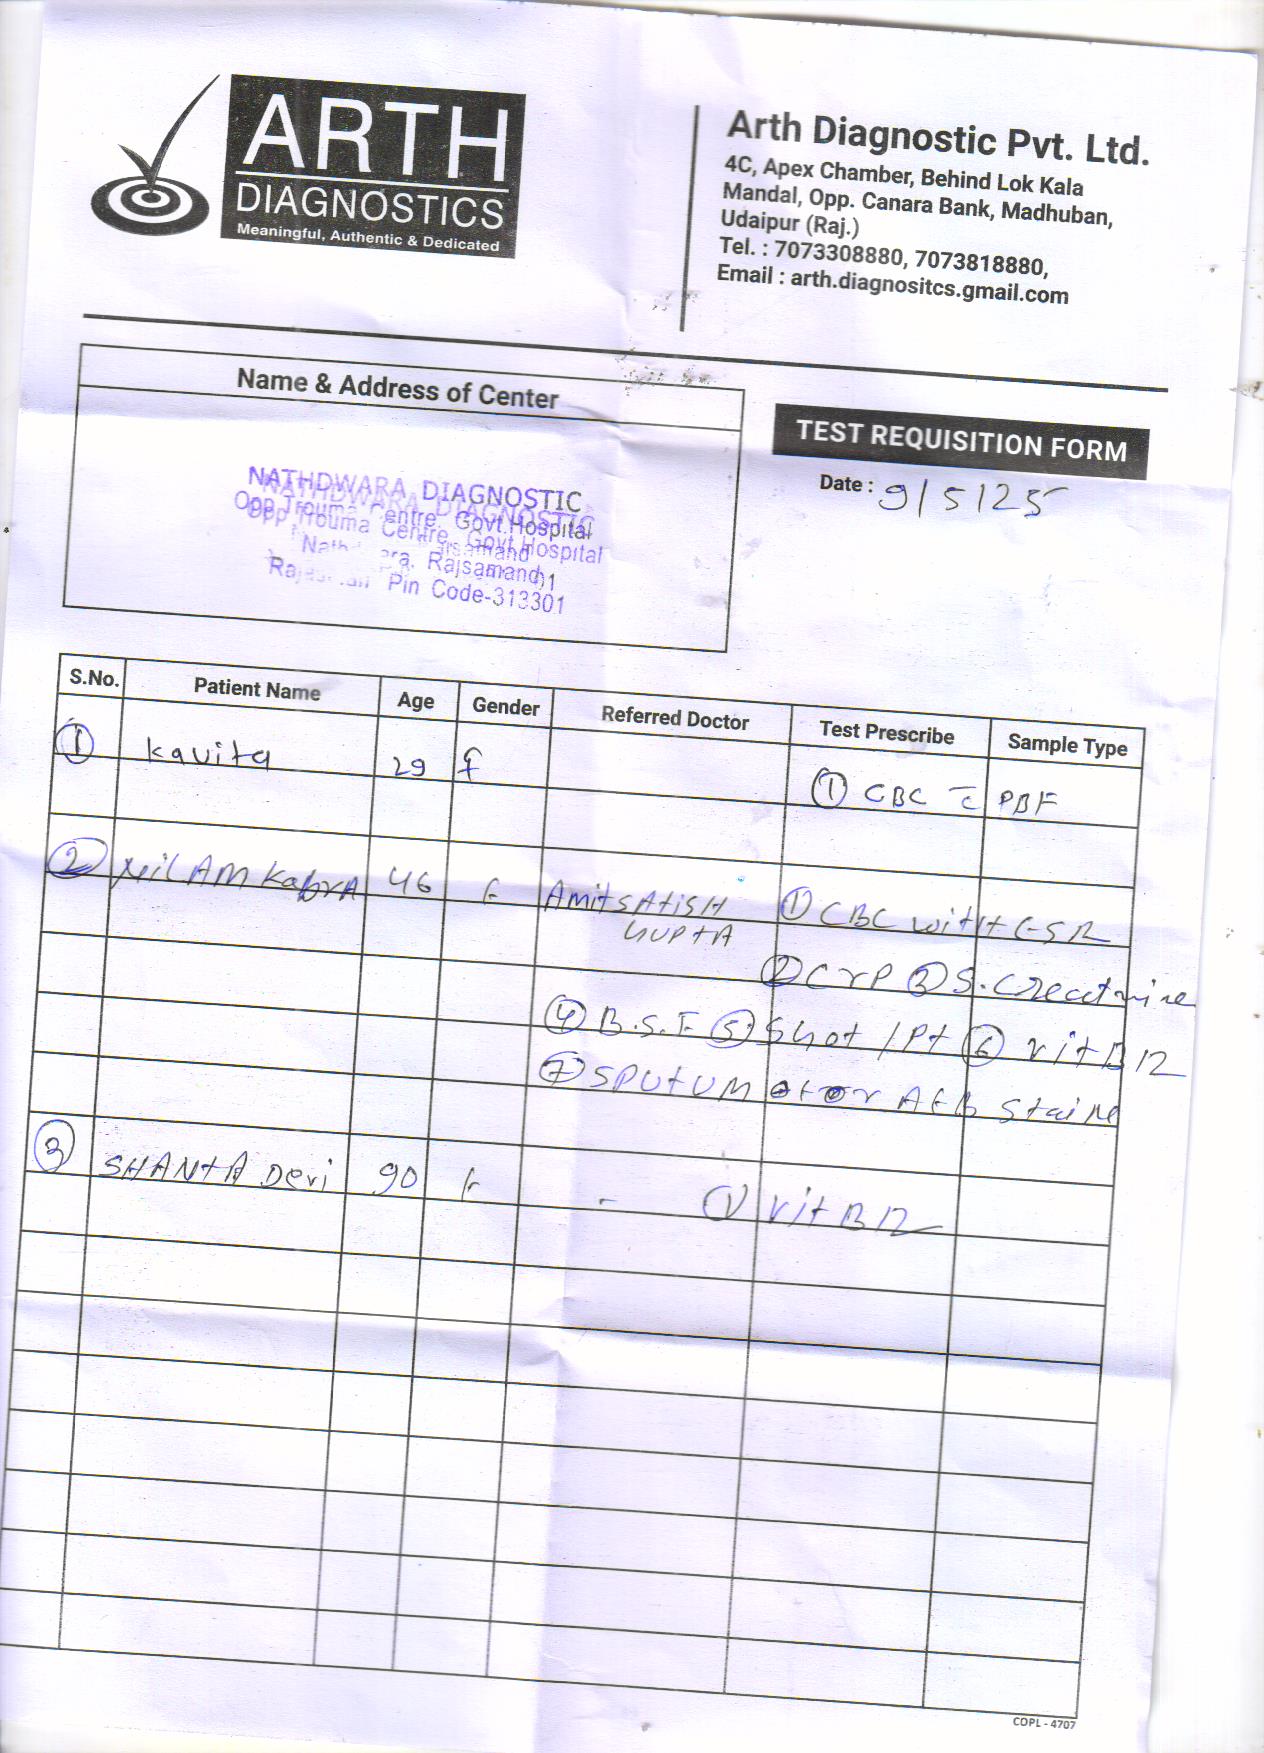 ARTH
DIAGNOSTICS
Meaningful, Authentic & Dedicated
Arth Diagnostic Pvt. Ltd.
4C, Apex Chamber, Behind Lok Kala
Mandal, Opp. Canara Bank, Madhuban,
Udaipur (Raj.)
Tel. : 7073308880, 7073818880,
Email : arth.diagnositcs.gmail.com
Name & Address of Center
NATHDWARA DIAGNOSTIC
Opp Trouma Centre, Govt.Hospital
Rajsamand
Pin Code-313301
TEST REQUISITION FORM
Date : 9/5/25
S.No. Patient Name Age Gender Referred Doctor Test Prescribe Sample Type
1 Kavita 29 F
1 CBC c̄ PBF
2 NilAM KabrA 46 F AmitSAtiSH 1 CBC witH ESR
GUPtA
2 CrP 3 S. Creatinine
4 B.S.F 5 SGot / Pt 6 Vit B12
7 SPUtUM for AFB Stain
3 SHANtA Devi 90 F - 1 Vit B12
COPL - 4707